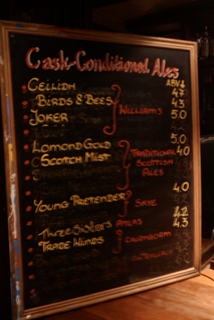 Cask-Conditioned Ales
ABV↓
Ceilidh 4.7
Birds & Bees 4.3
Joker 5.0
Williams
5.0
Lomond Gold
Traditional Scottish Ales 4.0
Scotch Mist
4.0
Young Pretender
Skye
4.2
Three Sisters Atlas 4.2
Trade Winds 4.3
Cairngorm